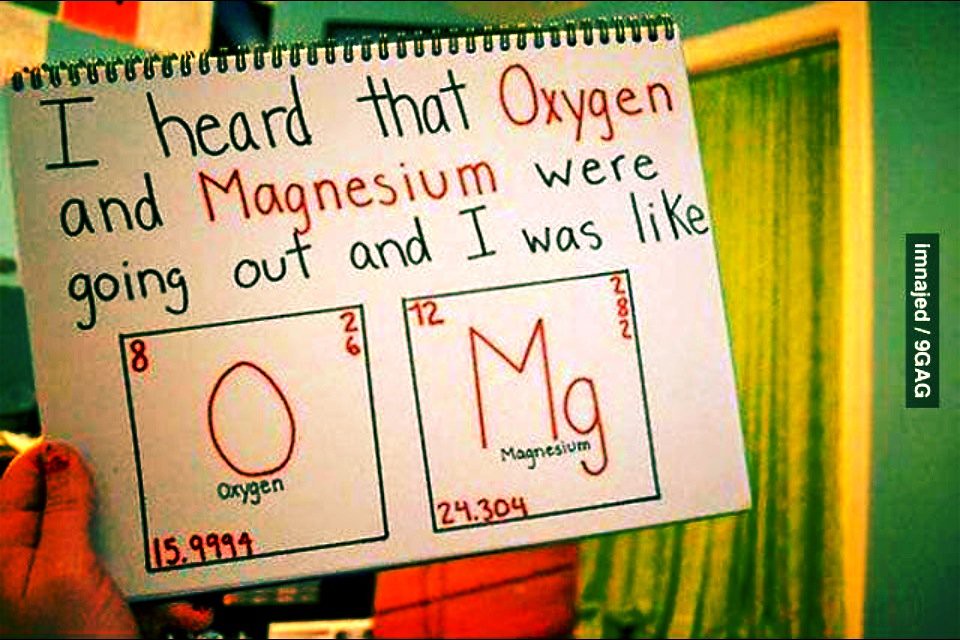 I heard that Oxygen
and Magnesium were
going out and I was like
8
2
6
O
Oxygen
15.9994
12
2
8
2
Mg
Magnesium
24.304
imnajed / 9GAG